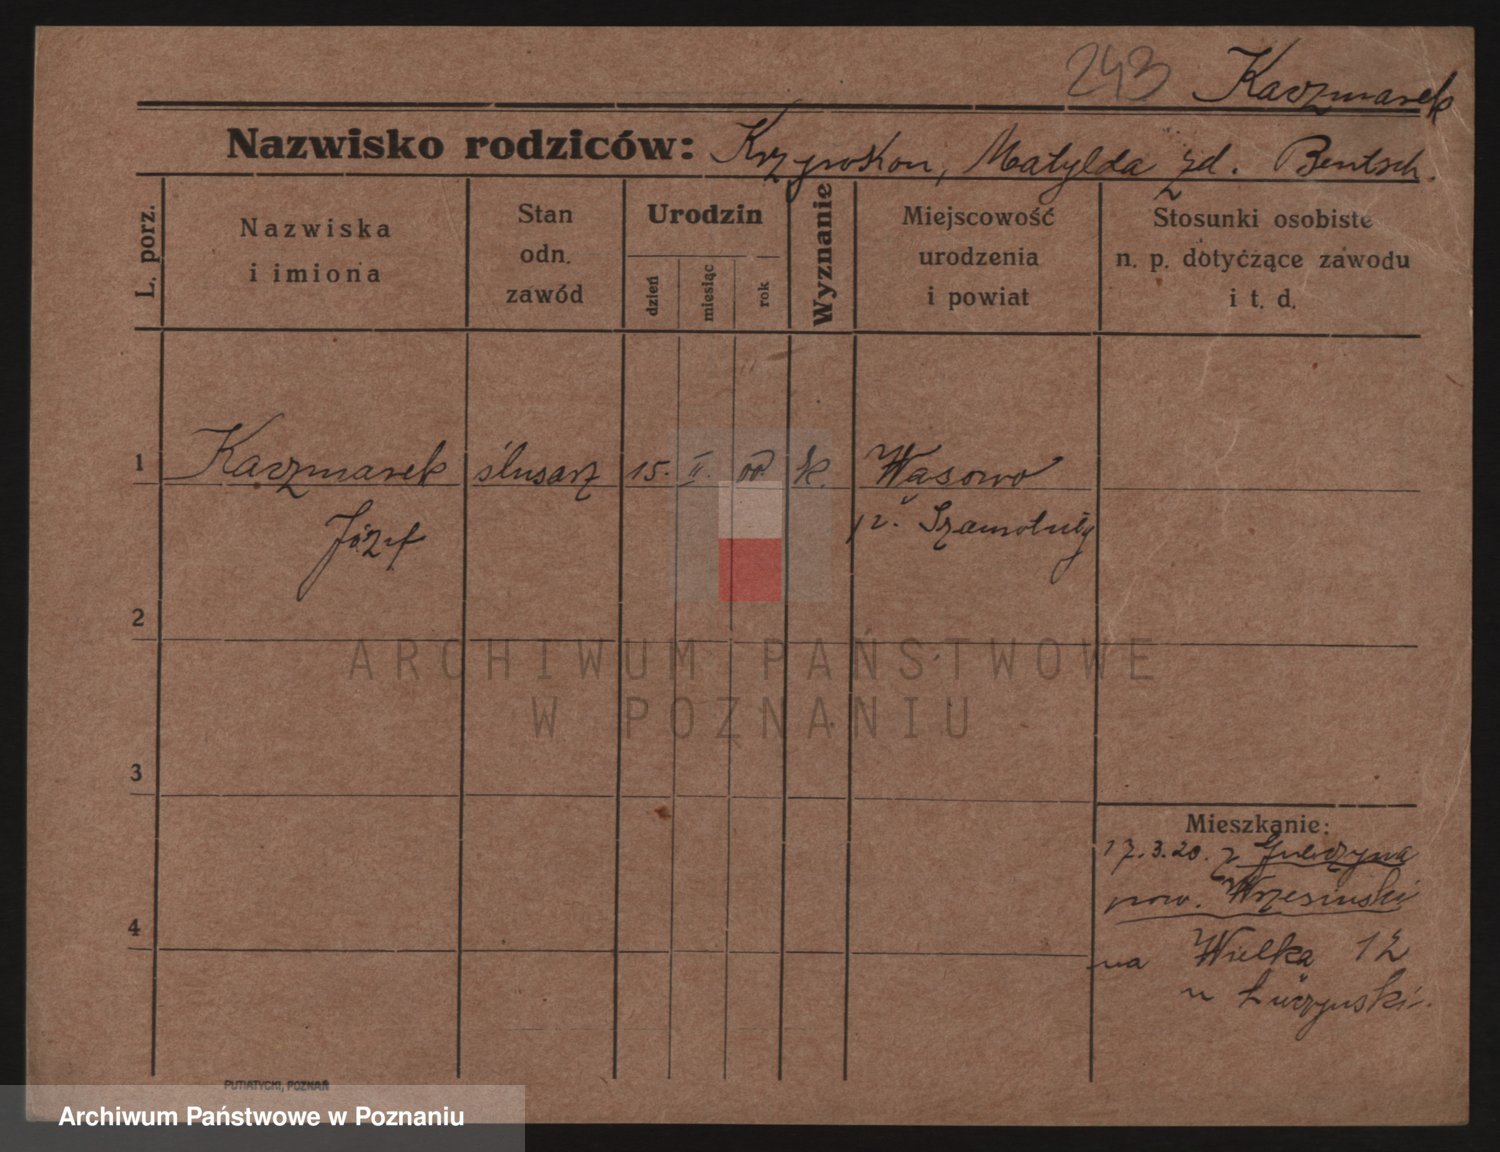 243 Kaczmarek
Nazwisko rodziców: Matylda zd. Bentsch.
L. porz.
Nazwiska
i imiona
Stan
odn.
zawód
Urodzin
dzień
miesiąc
rok
Wyznanie
Miejscowość
urodzenia
i powiat
Stosunki osobiste
n. p. dotyczące zawodu
i t. d.
1 Kaczmarek ślusarz 15. II. 00. k. Wąsowo
Józef p. Szamotuły
2
ARCHIWUM PAŃSTWOWE
W POZNANIU
3
Mieszkanie:
17.3.20. z
pow. Wrzesiński
4
na Wielka 12
u
PUTIATYCKI, POZNAŃ
Archiwum Państwowe w Poznaniu